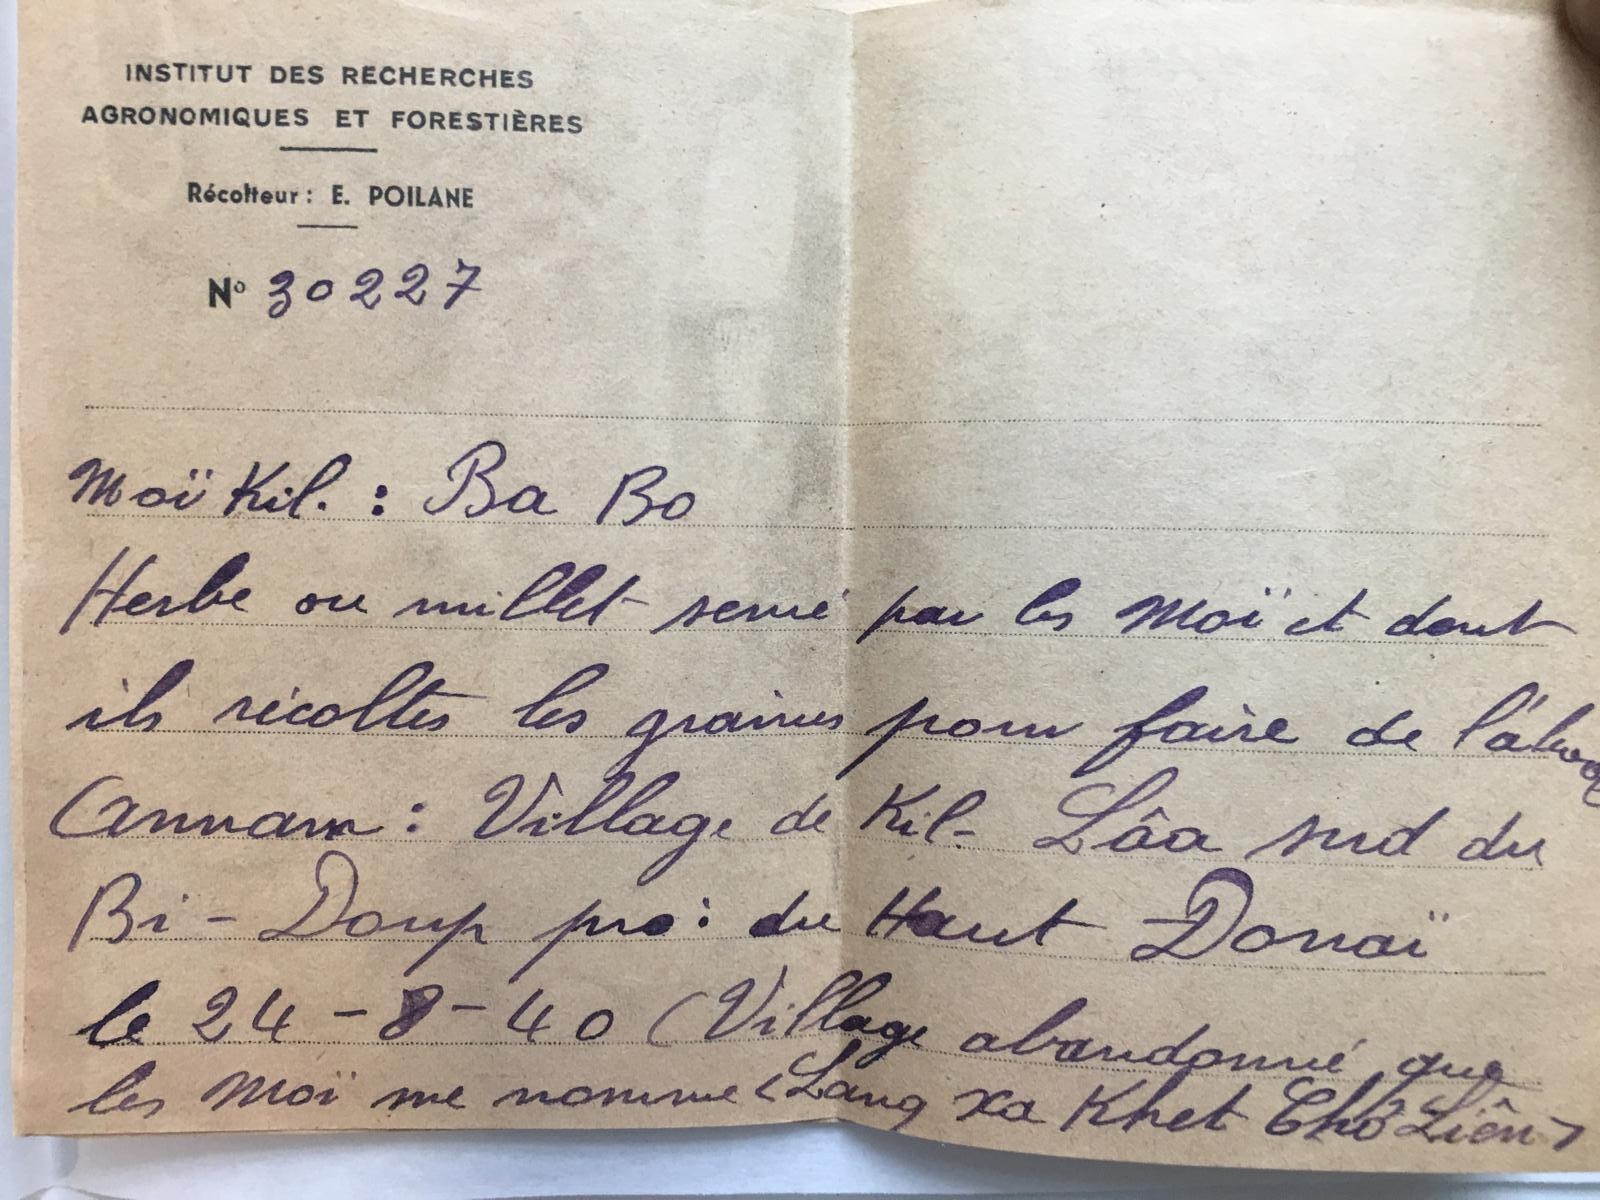 INSTITUT DES RECHERCHES
AGRONOMIQUES ET FORESTIÈRES
Récolteur : E. POILANE
N° 30227
Moï Kil. : Ba Bo
Herbe ou millet semé par les Moï et dont
ils récoltes les graines pour faire de l'álcool
Annam : Village de Kil- Lâa sud du
Bi-Doup pro: du Haut Donaï
le 24-8-40 (Village abandonné que
les Moï me nomme <Lang Xa Khet Chô Liên>